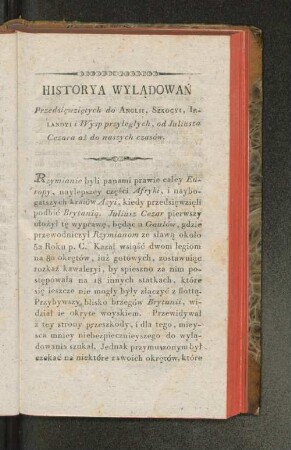 HISTORYA WYLĄDOWAŃ
Przedsięwziętych do ANGLII, SZKOCYI, IR-
LANDYI i Wysp przyległych, od Juliusza
Cezara aż do naszych czasów.
Rzymianie byli panami prawie całey Eu-
ropy, naylepszey części Afryki, i naybo-
gatszych kraiów Azyi, kiedy przedsięwzięli
podbić Brytanią. Juliusz Cezar pierwszy
ułożył tę wyprawę, będąc u Gaulów, gdzie
przewodniczył Rzymianom ze sławą około
52 Roku p. C. Kazał wsiąść dwom legiom
na 80 okrętów, iuż gotowych, zostawuiąc
rozkaz kawaleryi, by spieszno za nim po-
stępowała na 18 innych statkach, które
się ieszcze nie mogły były złączyć z flottą.
Przybywszy blisko brzegów Brytanii, wi-
dział ie okryte woyskiem. Przewidywał
z tey strony przeszkody, i dla tego, miey-
sca mniey niebezpiecznieyszego do wylą-
dowania szukał. Jednak przymuszonym był
czekać na niektóre z swoich okrętów, które